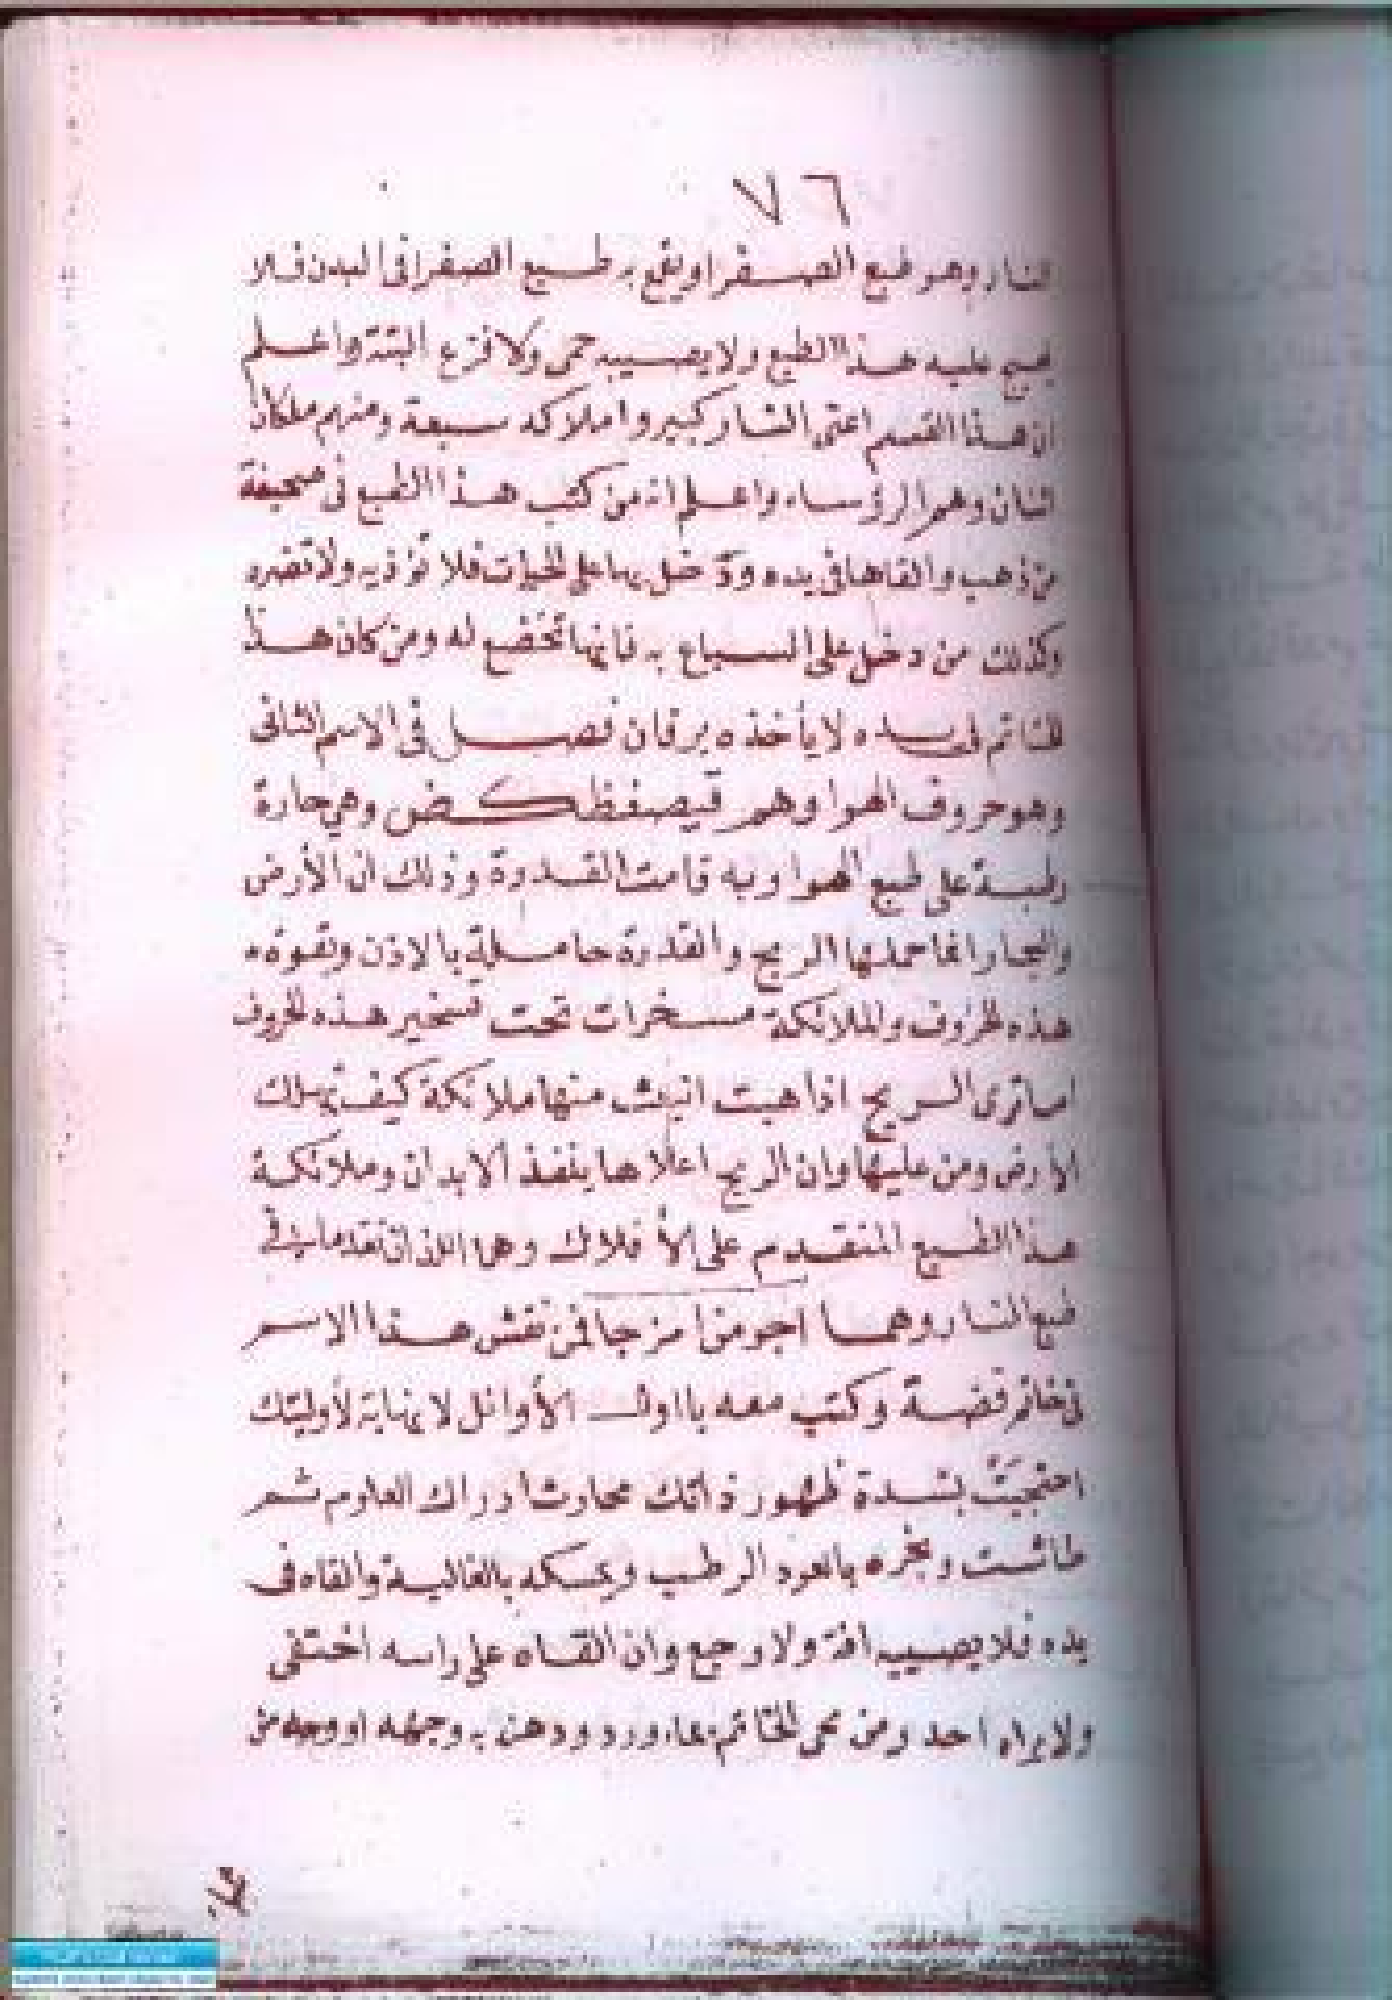 ٧٦
النار وهو طبع الصفرا ويقمع به طبع الصفرا فى البدن فلا
يهيج عليه هذا الطبع ولا يصيبه حمى ولا فزع البتة واعلم
ان هذا القسم اعنى النار كبير واملاكه سبعة ومنهم ملكان
اثنان وهم الرؤساء واعلم انه من كتب هذا الطبع فى صحيفة
من ذهب والقاها فى يده ودخل بها على الحيات فلا تؤذيه ولا تضره
وكذلك من دخل على السباع به فانها تخضع له ومن كان هذا
الخاتم فى يده لا يأخذه يرقان فصل فى الاسم الثانى
وهو حروف الهوا وهم قيصفظكض وهى حارة
رطبة على طبع الهوا وبه قامت القدرة وذلك ان الأرض
والبحار انما حملتها الريح والقدرة حاملة بالاذن وبقوة
هذه الحروف والملائكة مسخرات تحت تسخير هذه الحروف
اما ترى الريح اذا هبت انبث منها ملائكة كيف تهلك
الأرض ومن عليها وان الريح اعلاها ينفذ الابدان وملائكة
هذا الطبع المتقدم على الأفلاك وهما اللذان تقدما فى
طبع النار وهما فمن نقش هذا الاسم
فى خاتم فضة وكتب معه يا اول الأوائل لا نهاية لأوليتك
احتجبت بشدة ظهور ذاتك ادراك العلوم ثم
طاشت وبخره بالعود الرطب ويمسكه بالغالية والقاه فى
يده فلا يصيبه افة ولا وجع وان القاه على راسه اختفى
ولا يراه احد ومن محى الخاتم بماء ورد ودهن به وجهه او وجه من